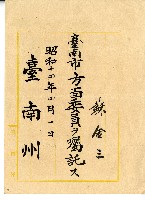 蘇金三
臺南市方面委員ヲ囑託ス
昭和十四年四月一日
臺南州